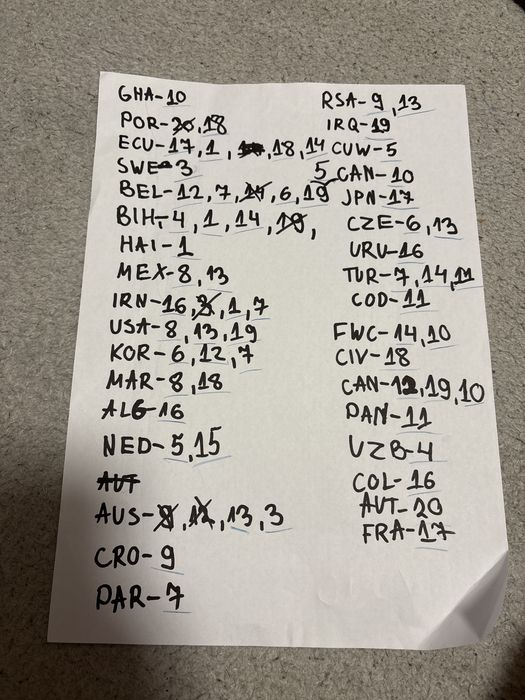 GHA-10
POR-20,18
ECU-17,1, 18,14
SWE-3
BEL-12,7,14,6,19,5
BIH-4,1,14,19,
HAI-1
MEX-8,13
IRN-16,3,1,7
USA-8,13,19
KOR-6,12,7
MAR-8,18
ALG-16
NED-5,15
AUT
AUS-9,12,13,3
CRO-9
PAR-7
RSA-9,13
IRQ-19
CUW-5
CAN-10
JPN-17
CZE-6,13
URU-16
TUR-7,14,11
COD-11
FWC-14,10
CIV-18
CAN-12,19,10
PAN-11
UZB-4
COL-16
AUT-20
FRA-17